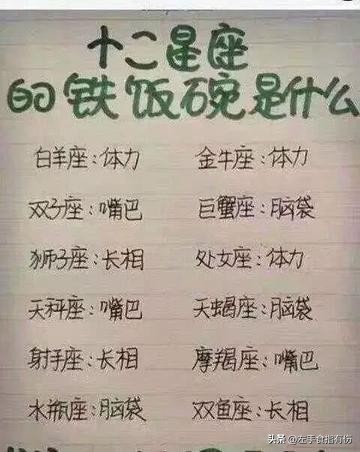 十二星座
的铁饭碗是什么
白羊座:体力 金牛座:体力
双子座:嘴巴 巨蟹座:脑袋
狮子座:长相 处女座:体力
天秤座:嘴巴 天蝎座:脑袋
射手座:长相 摩羯座:嘴巴
水瓶座:脑袋 双鱼座:长相
头条 @左手食指有伤